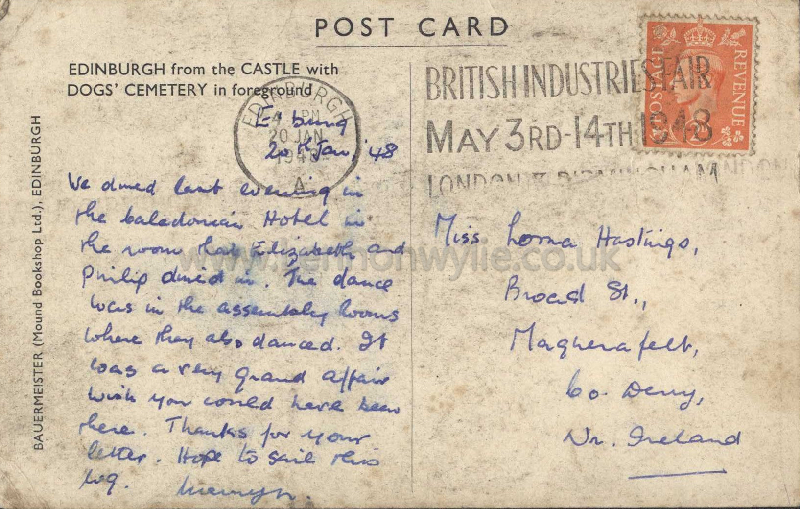 POST CARD
EDINBURGH from the CASTLE with
DOGS' CEMETERY in foreground
BAUERMEISTER (Mound Bookshop Ltd.), EDINBURGH
EDINBURGH
PM
20 JAN
1948
A
BRITISH INDUSTRIES FAIR
MAY 3RD-14TH 1948
LONDON & BIRMINGHAM
LONDON
POSTAGE
REVENUE
20th Jan, '48
We dined last evening in
the Caledonian Hotel in
the room that Elizabeth and
Philip dined in. The dance
was in the assembly rooms
where they also danced. It
was a very grand affair
wish you could have been
there. Thanks for your
letter. Hope to sail this
Miss Lorna Hastings,
Broad St.,
Magherafelt,
Co. Derry,
Nr. Ireland